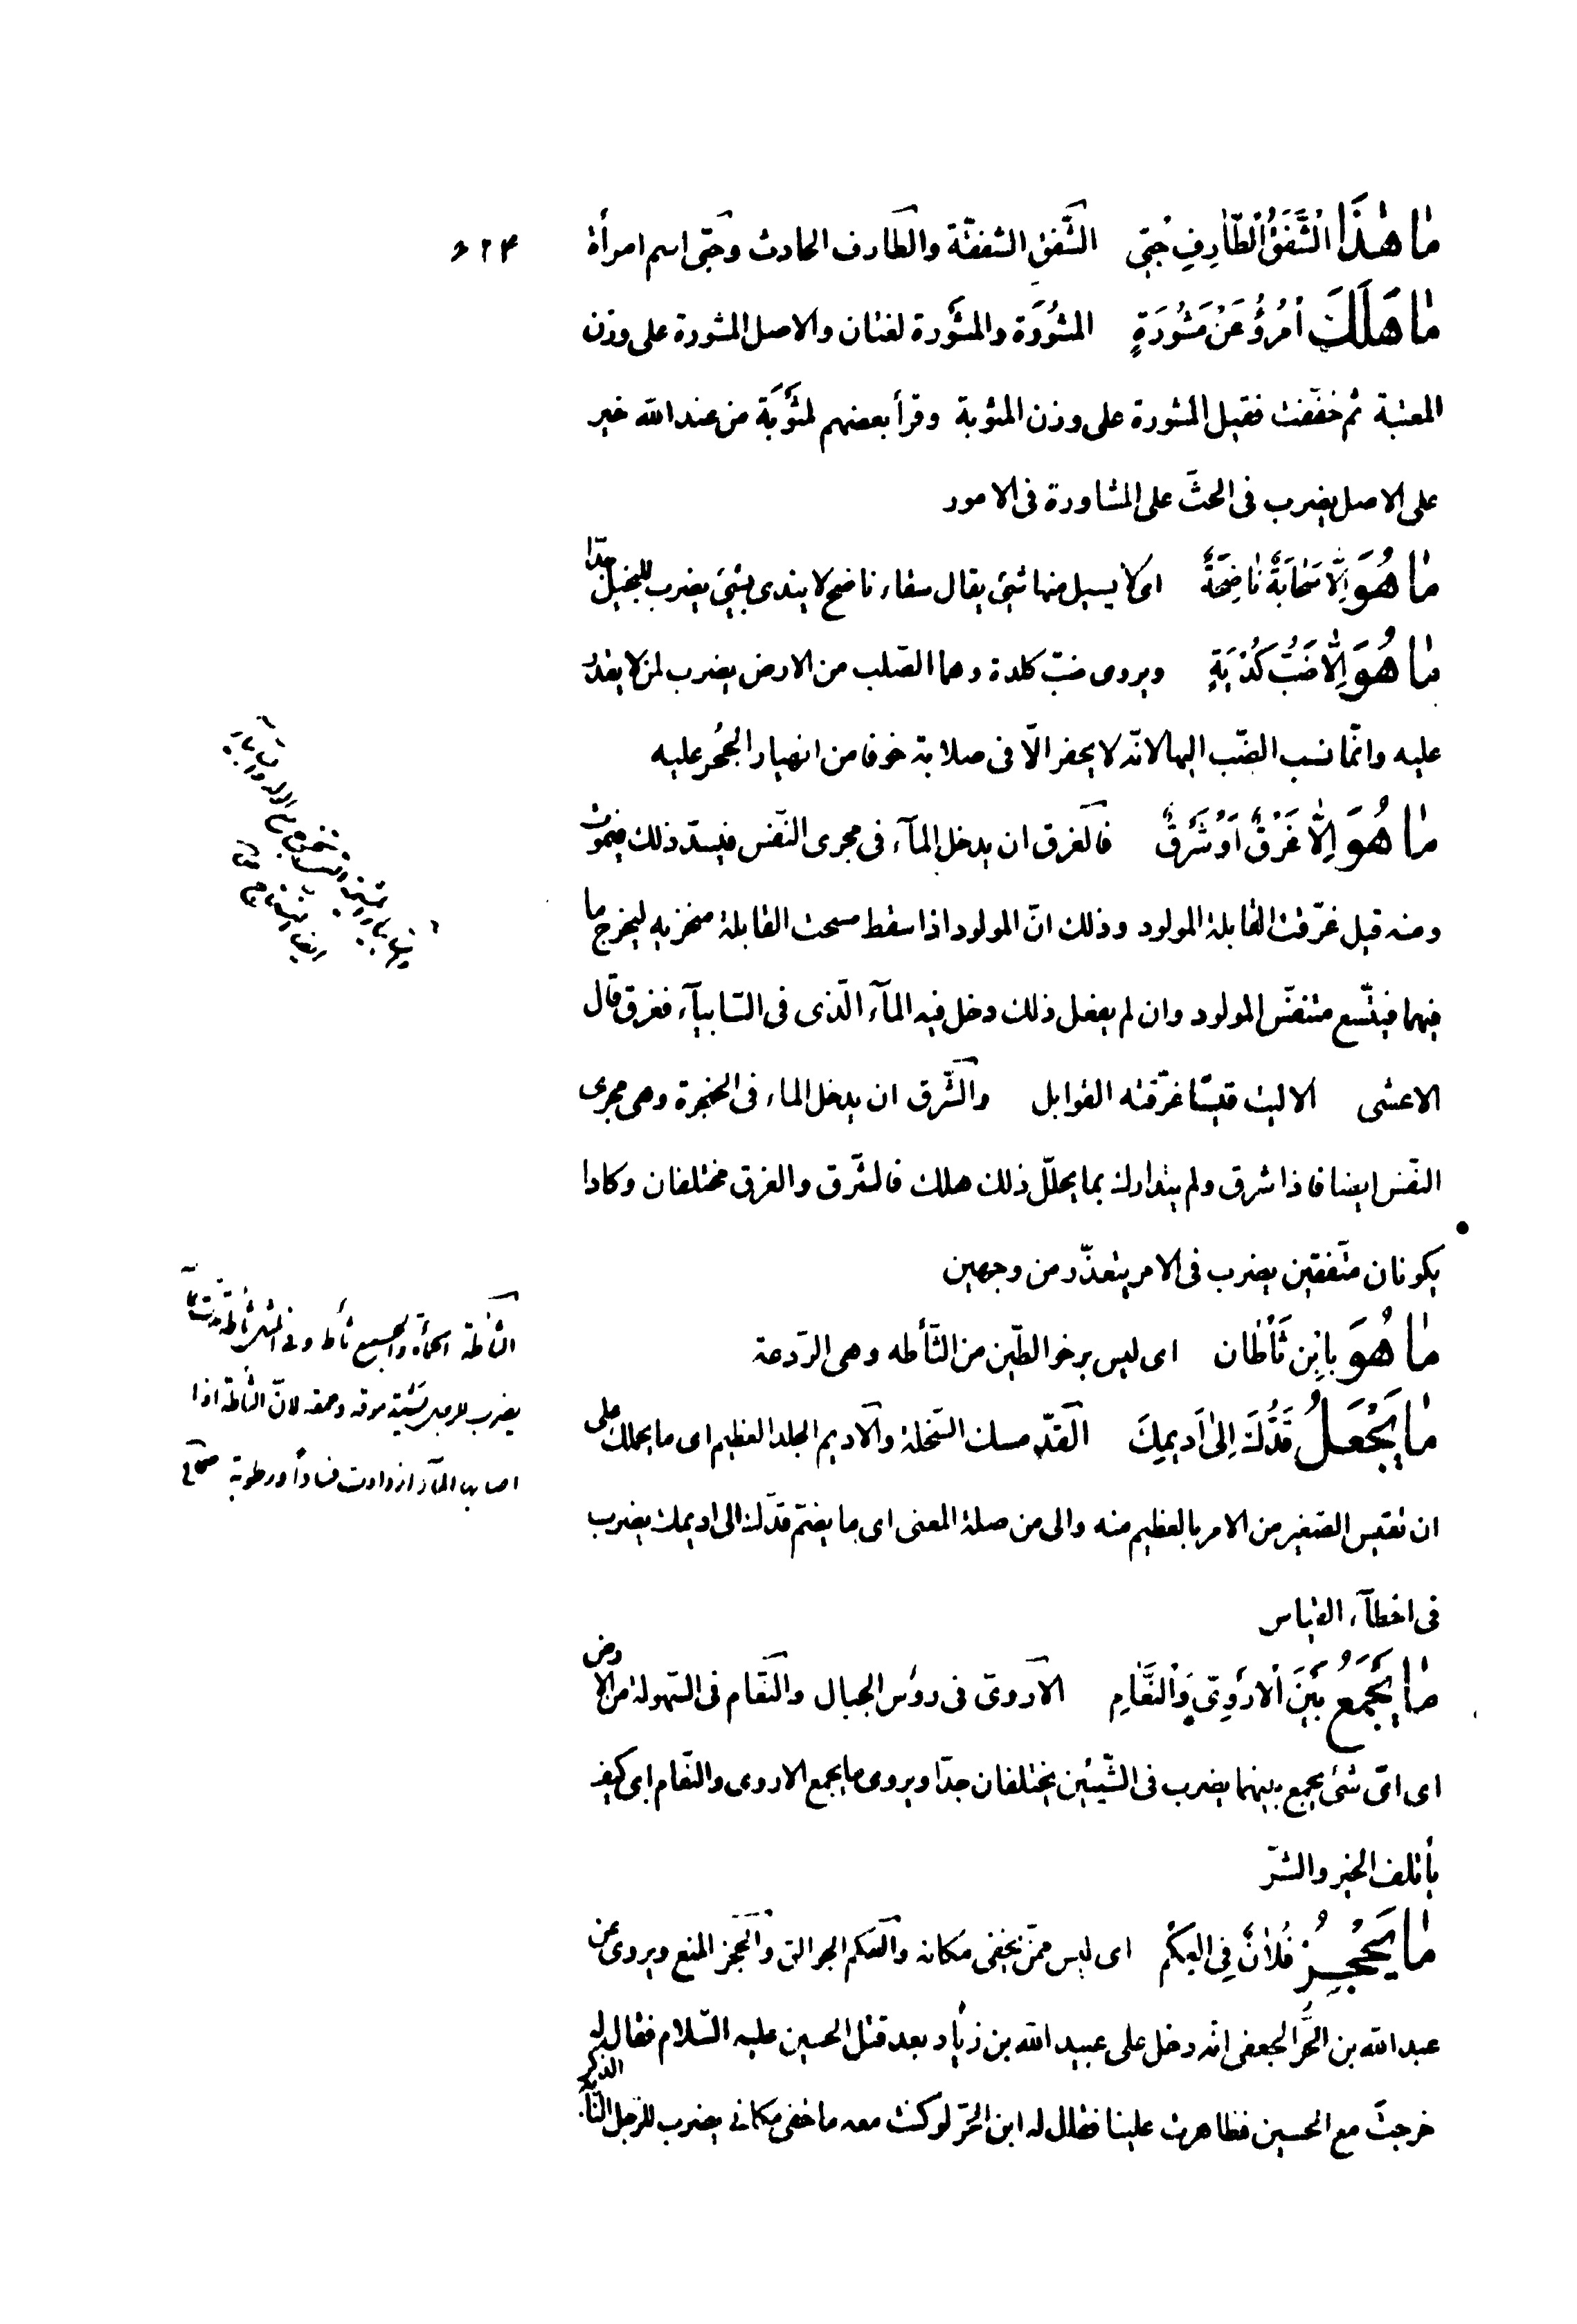 ما هذا الشَّفَقُ الطّارِفِ حُبّى الشَّفق الشفقة والطارف الحادث وحُبّى اسم امرأة
ما هَلَكَ امْرُؤٌ عَنْ مَشُورَةٍ المَشُوَرة والمَشْوَرة لغتان والاصل المشورة على وزن
المعتبة ثم خفّفت فقيل المشورة على وزن المثوبة وقرأ بعضهم لمَثْوَبَة من عند الله خير
على الاصل يضرب فى الحثّ على المشاورة فى الامور
ما هُوَ اِلّا سَحابَةٌ ناضِحَةٌ اى لا يسيل منها شئ يقال سقاء ناضح لا يندى بشئ يضرب للبخيل جدّا
ما هُوَ اِلّا ضَبُّ كُدْيَةٍ ويروى ضبّ كلدة وهما الصّلب من الارض يضرب لمن لا يقدر
عليه وانّما نسب الضّب اليها لانّه لا يحفر الّا فى صلابة خوفا من انهيار الجُحر عليه
ما هُوَ اِلّا غَرَقٌ اَوْ شَرَقٌ فالغرق ان يدخل المآء فى مجرى النّفس فيسدّ ذلك فيموت
ومنه قيل غرّقت القابلة المولود وذلك انّ المولود اذا سقط مسحت القابلة منخريه ليخرج ما
فيهما فيتّسع متنفّس المولود وان لم يفعل ذلك دخل فيه المآء الّذى فى السّابيآء فغرق قال
الاعشى الا ليت قيسًا غرّقته القوابل والشّرق ان يدخل الماء فى الحنجرة وهى مجرى
النّفس ايضا فاذا شرق ولم يتدارك بما يحلّل ذلك هلك فالشّرق والغرق مختلفان وكادا
يكونان متّفقين يضرب فى الامر يتعذّر من وجهين
ما هُوَ بابِن ثَأْطان اى ليس برخو الطّين من الثّأطه وهى الرّدعة
ما يَجْعَلُ قَدَّكَ اِلى اَديمِكَ القدّ مسك السّخلة والاديم الجلد العظيم اى ما يحملك على
ان تقيس الصّغير من الامر بالعظيم منه والى من صلة المعنى اى ما يضمّ قدّك الى اديمك يضرب
فى اخطآء القياس
ما يَجْمَعُ بَيْنَ الْاَرْوىّ وَالنَّعامِ الاروىّ فى رؤس الجبال والنّعام فى السّهولة من الارض
اى اىّ شئ يجمع بينهما يضرب فى الشّيئين يختلفان جدّا ويروى ما يجمع الاروى والنّعام اى كيف
يأتلف الخير والشرّ
ما يَحْجِزُ فُلانٌ فِى العِكْمِ اى ليس ممّن يخفى مكانه والعكم الجوالق والحجز المنع ويروى عن
عبد الله بن الحُرّ الجعفى انّه دخل على عبيد الله بن زياد بعد قتل الحسين عليه السّلام فقال له
خرجتَ مع الحسين فظاهرت علينا فقال له ابن الحُرّ لو كنت معه ما خفى مكانى يضرب للرّجل النّابه الذكر
٦٢٤
الثأطة الحمأة والجميع ثأط وفى المثل ثأطة مدّت بمآء
يضرب للرجل يشتدّ موقه وحمقه لانّ الثأطة اذا
اصابها المآء ازدادت فسادًا ورطوبة صحاح